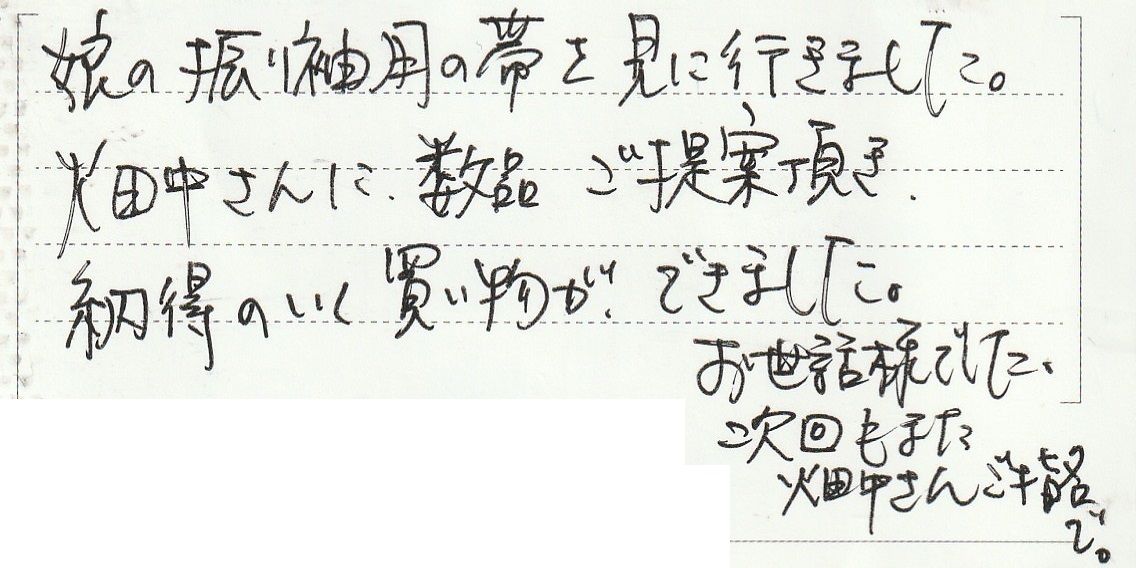 娘の振り袖用の帯を見に行きました。
畑中さんに、数品ご提案頂き、
納得のいく買い物が、できました。
お世話様でした、
次回もまた
畑中さんご指名
で。